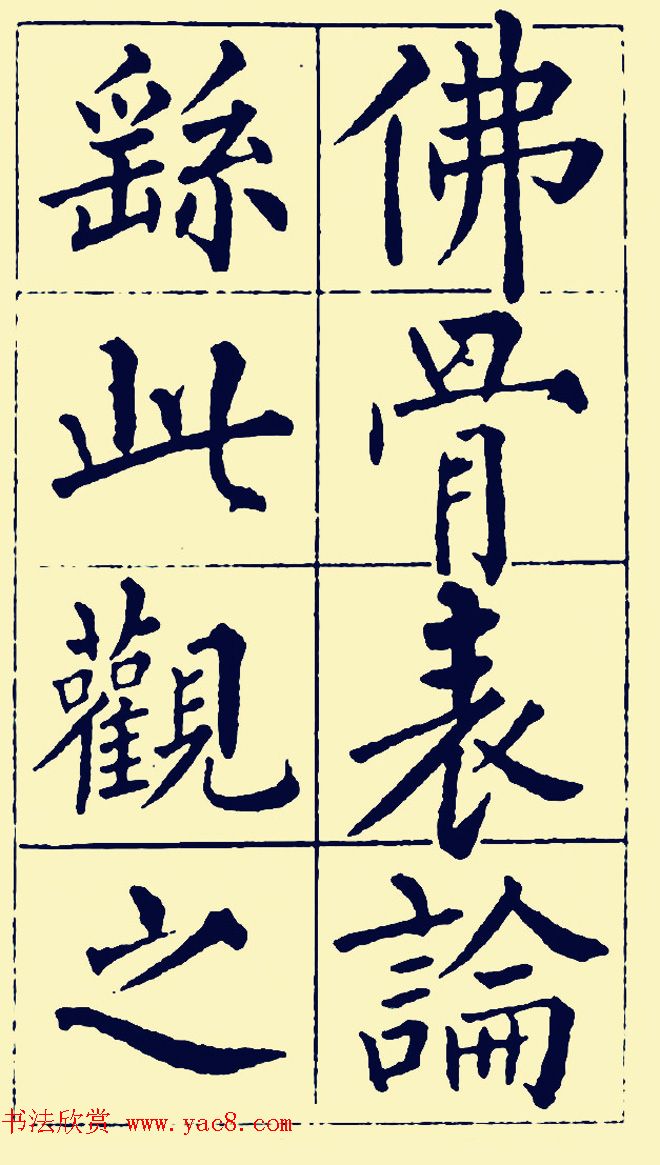 佛骨表論
繇此觀之
书法欣赏 www.yac8.com